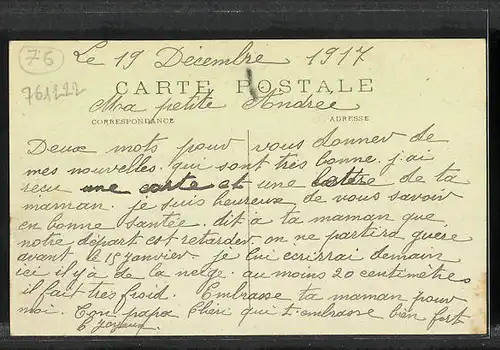 76
761222
Le 19 Décembre 1917
CARTE POSTALE
Ma petite Andrée
CORRESPONDANCE ADRESSE
Deux mots pour vous donner de
mes nouvelles. qui sont très bonne. j'ai
reçu une carte et une lettre de ta
maman. je suis heureux de vous savoir
en bonne santée. dit à ta maman que
notre départ est retarder on ne partira guère
avant le 15 janvier je lui ecrirrai demain
ici il y à de la neige. au moins 20 centimètres
il fait très froid. Embrasse ta maman pour
moi. Ton papa Chéri qui t'embrasse bien fort